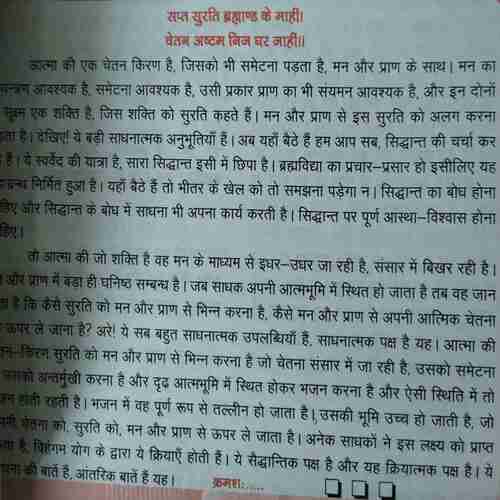 सप्त सुरति ब्रह्माण्ड के माहीं।
चेतन अष्टम निज घर जाहीं।।
आत्मा की एक चेतन किरण है, जिसको भी समेटना पड़ता है, मन और प्राण के साथ। मन का
आवश्यक है, समेटना आवश्यक है, उसी प्रकार प्राण का भी संयमन आवश्यक है, और इन दोनों
सूक्ष्म एक शक्ति है, जिस शक्ति को सुरति कहते हैं। मन और प्राण से इस सुरति को अलग करना
है। देखिए! ये बड़ी साधनात्मक अनुभूतियाँ हैं। अब यहाँ बैठे हैं हम आप सब, सिद्धान्त की चर्चा कर
हैं। ये स्वर्वेद की यात्रा है, सारा सिद्धान्त इसी में छिपा है। ब्रह्मविद्या का प्रचार-प्रसार हो इसीलिए यह
निर्मित हुआ है। यहाँ बैठे हैं तो भीतर के खेल को तो समझना पड़ेगा न। सिद्धान्त का बोध होना
और सिद्धान्त के बोध में साधना भी अपना कार्य करती है। सिद्धान्त पर पूर्ण आस्था-विश्वास होना
तो आत्मा की जो शक्ति है वह मन के माध्यम से इधर-उधर जा रही है, संसार में बिखर रही है।
और प्राण में बड़ा ही घनिष्ठ सम्बन्ध है। जब साधक अपनी आत्मभूमि में स्थित हो जाता है तब वह जान
है कि कैसे सुरति को मन और प्राण से भिन्न करना है, कैसे मन और प्राण से अपनी आत्मिक चेतना
ऊपर ले जाना है? अरे! ये सब बहुत साधनात्मक उपलब्धियाँ हैं, साधनात्मक पक्ष है यह। आत्मा की
सुरति को मन और प्राण से भिन्न करना है जो चेतना संसार में जा रही है, उसको समेटना
उसको अन्तर्मुखी करना है और दृढ़ आत्मभूमि में स्थित होकर भजन करना है और ऐसी स्थिति में तो
होती रहती है। भजन में वह पूर्ण रूप से तल्लीन हो जाता है। उसकी भूमि उच्च हो जाती है, जो
चेतना को, सुरति को, मन और प्राण से ऊपर ले जाता है। अनेक साधकों ने इस लक्ष्य को प्राप्त
है, विहंगम योग के द्वारा ये क्रियाएँ होती हैं। ये सैद्धान्तिक पक्ष है और यह क्रियात्मक पक्ष है। ये
की बातें हैं, आंतरिक बातें हैं यह। क्रमशः.....